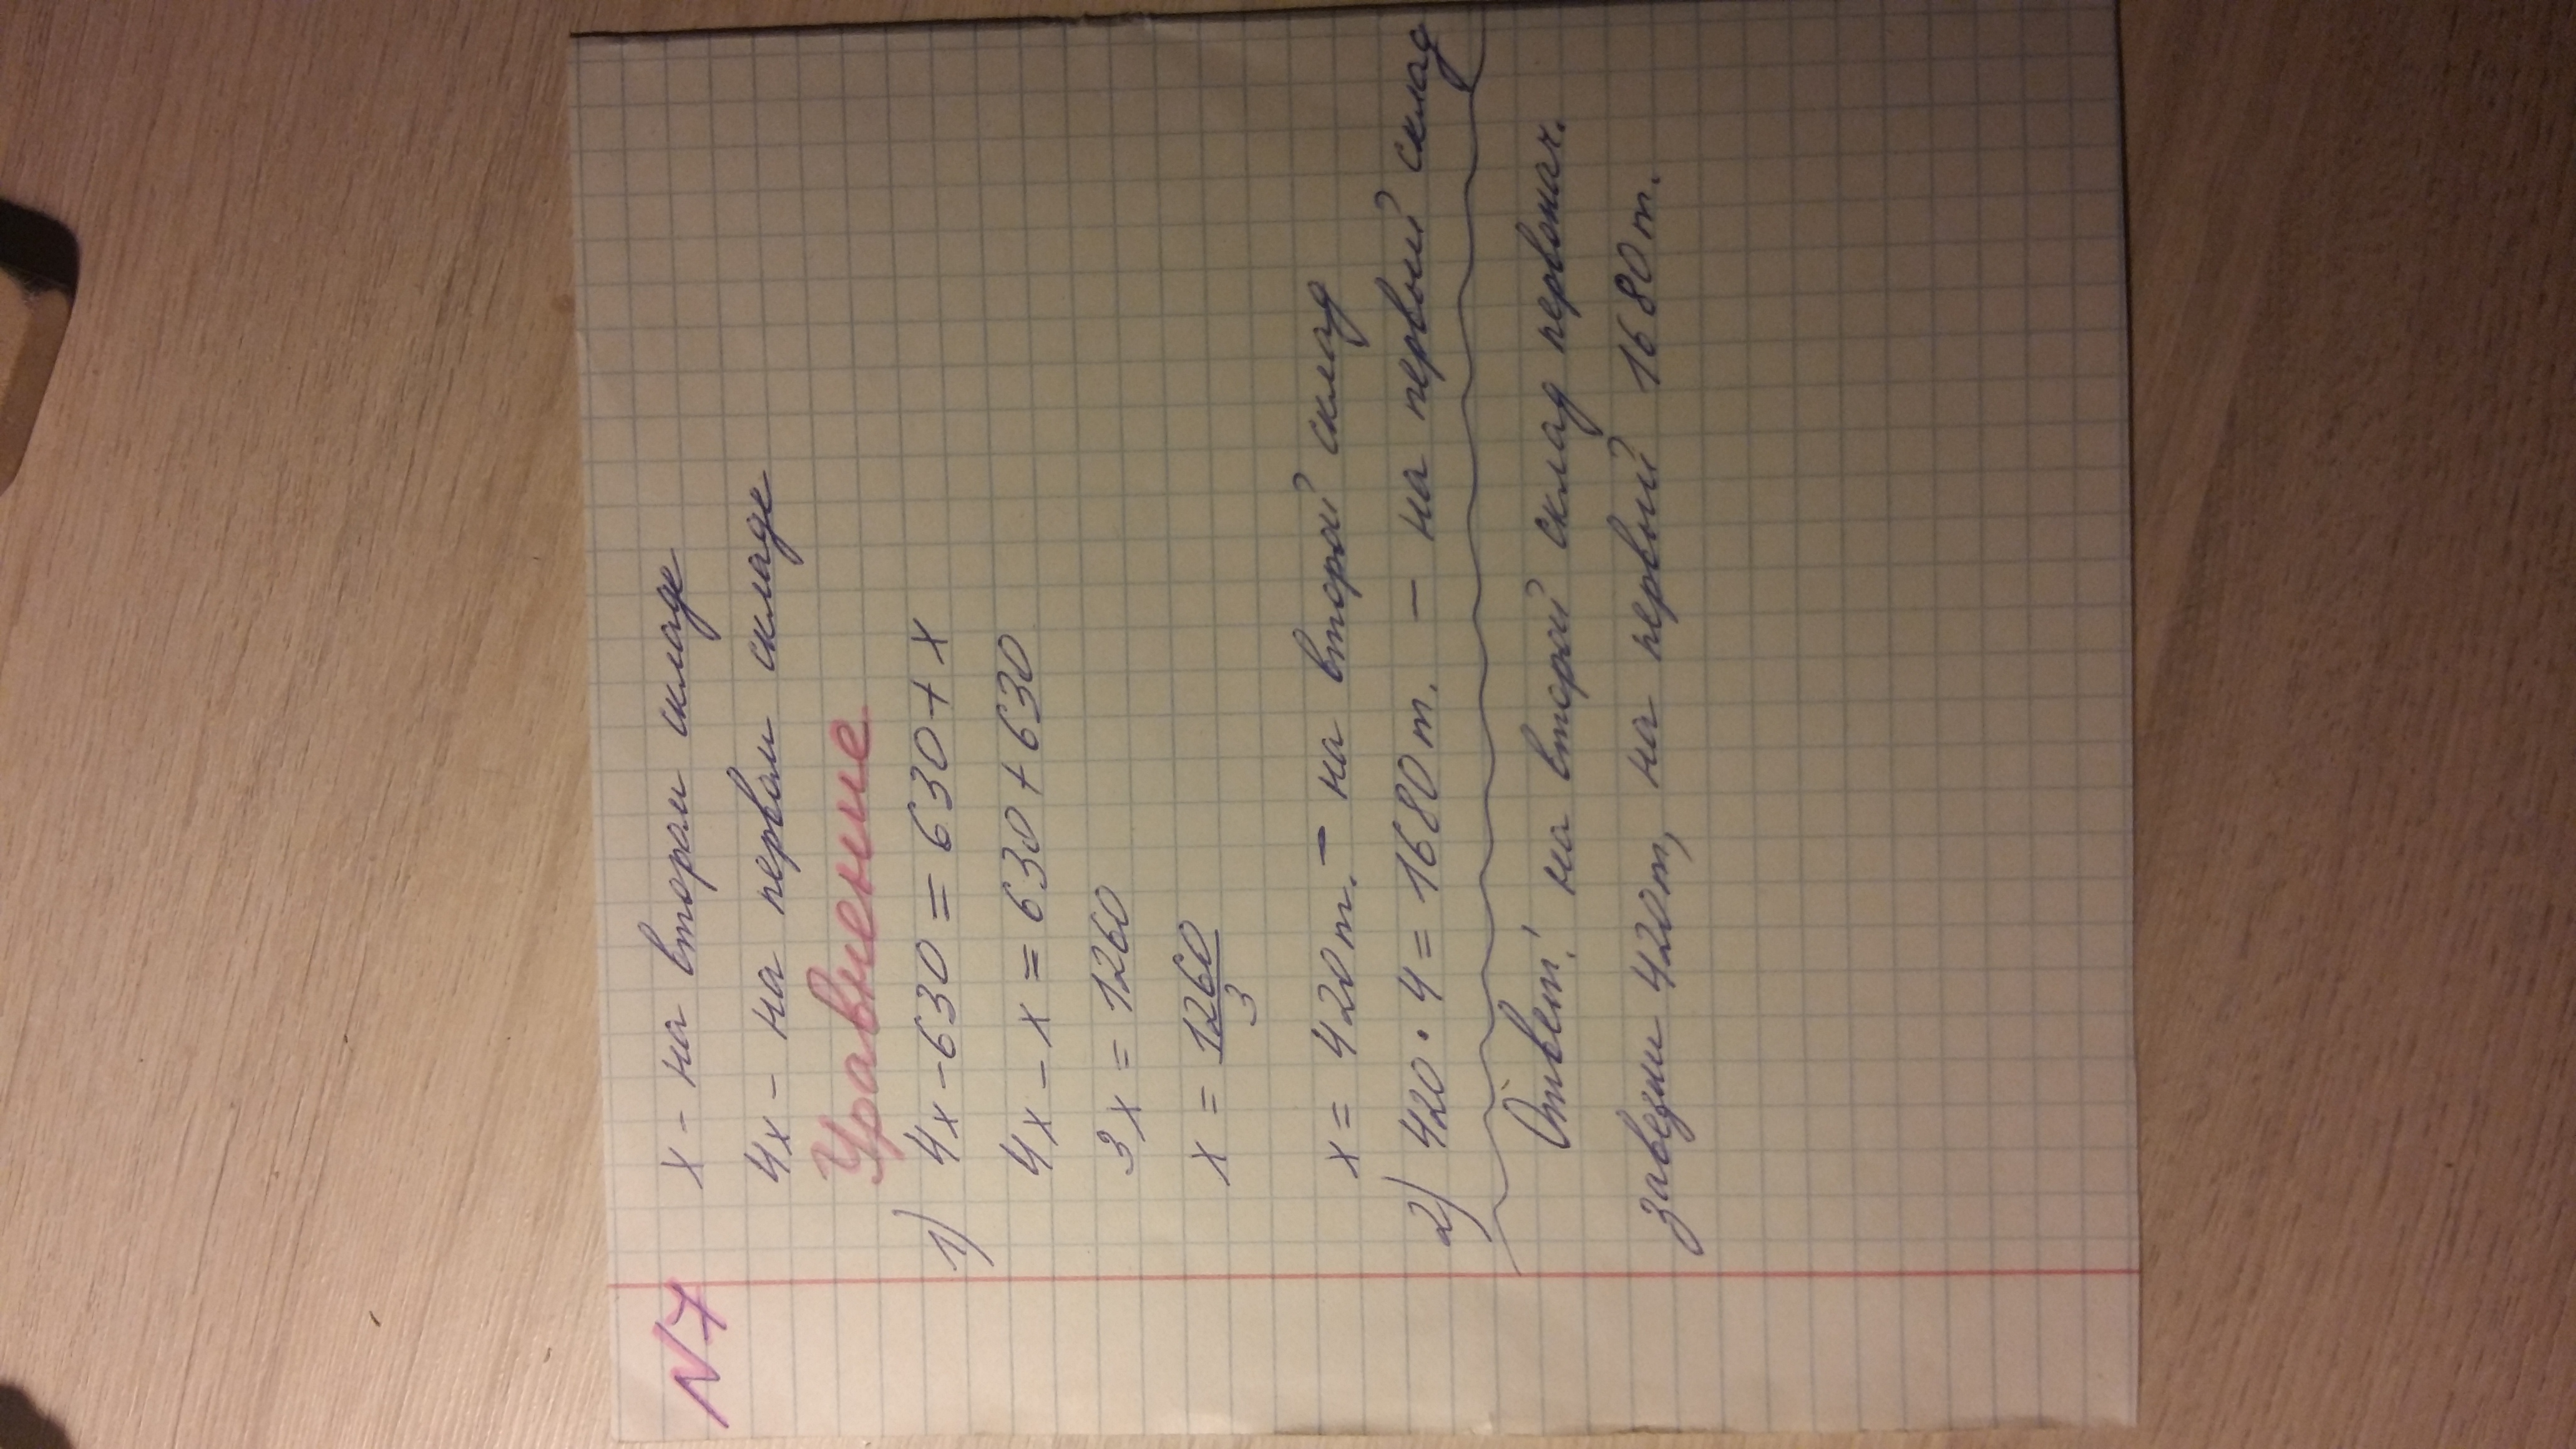 N7
x - на втором складе
4x - на первом складе
Уравнение.
1) 4x - 630 = 630 + x
4x - x = 630 + 630
3x = 1260
x = 1260/3
x = 420 т. - на второй склад
2) 420 · 4 = 1680 т. - на первый склад
Ответ: на второй склад первонач.
завезли 420 т, на первый 1680 т.